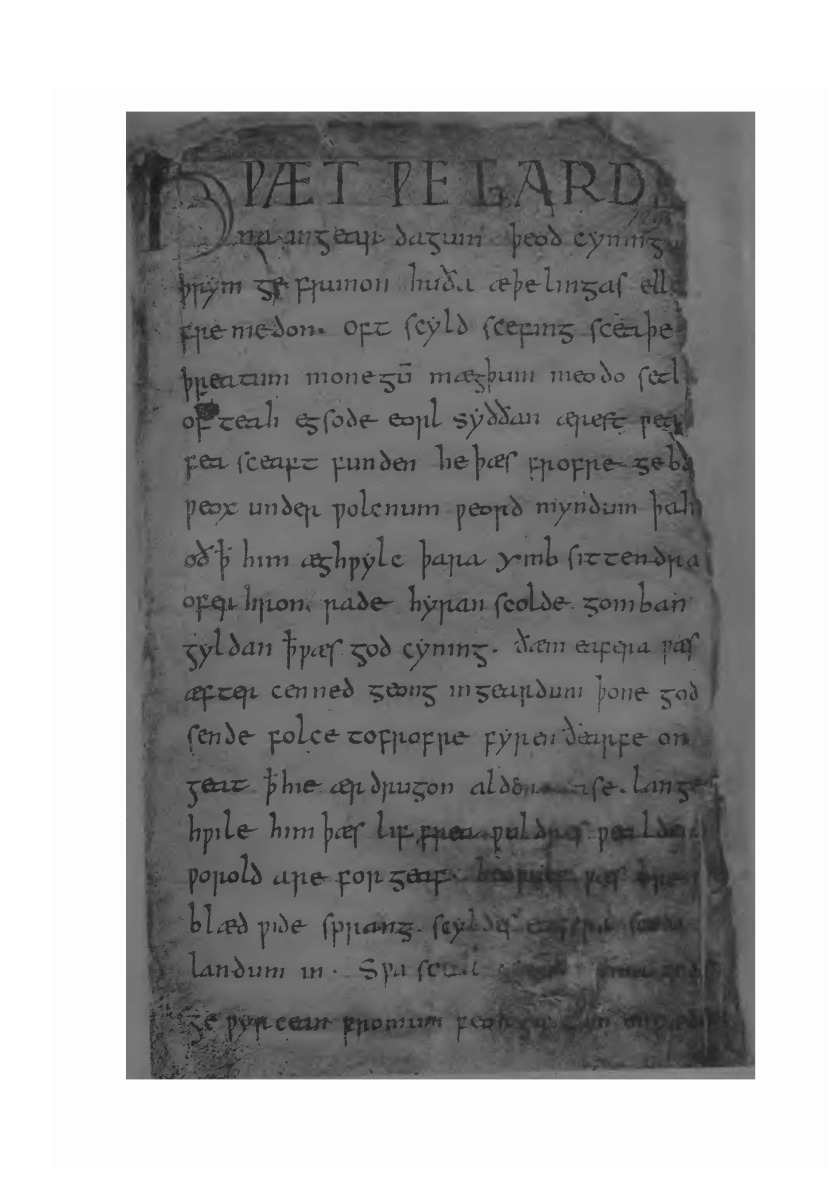 HǷÆT ǷE GARDE
na ingear dagum. þeod cyninga
þrym ge frunon huða æþelingas elle
fre medon. oft scyld scefing sceaþe
þreatum monegū mægþum meodo setl
of teah egsode eorl syððan ærest ƿear
fea sceaft funden he þæs frofre geba
ƿeox under ƿolcnum ƿeorð myndum þah
oð ꝥ him æghƿylc þara ymb sittendra
ofer hron rade hyran scolde gomban
gyldan ꝥƿæs god cyning. ðæm eafera ƿæs
æfter cenned geong ingeardum þone god
sende folce tofrofre fyren ðearfe on
geat ꝥhie ær drugon aldor ase. lange
hƿile him þæs lif frea ƿuldres ƿealdend
ƿorold are for geaf. beoƿulf ƿæs bre
blæd ƿide sprang. scyldes eafera scede
landum in. Sƿa sceal
ge ƿyrcean fromum feoh